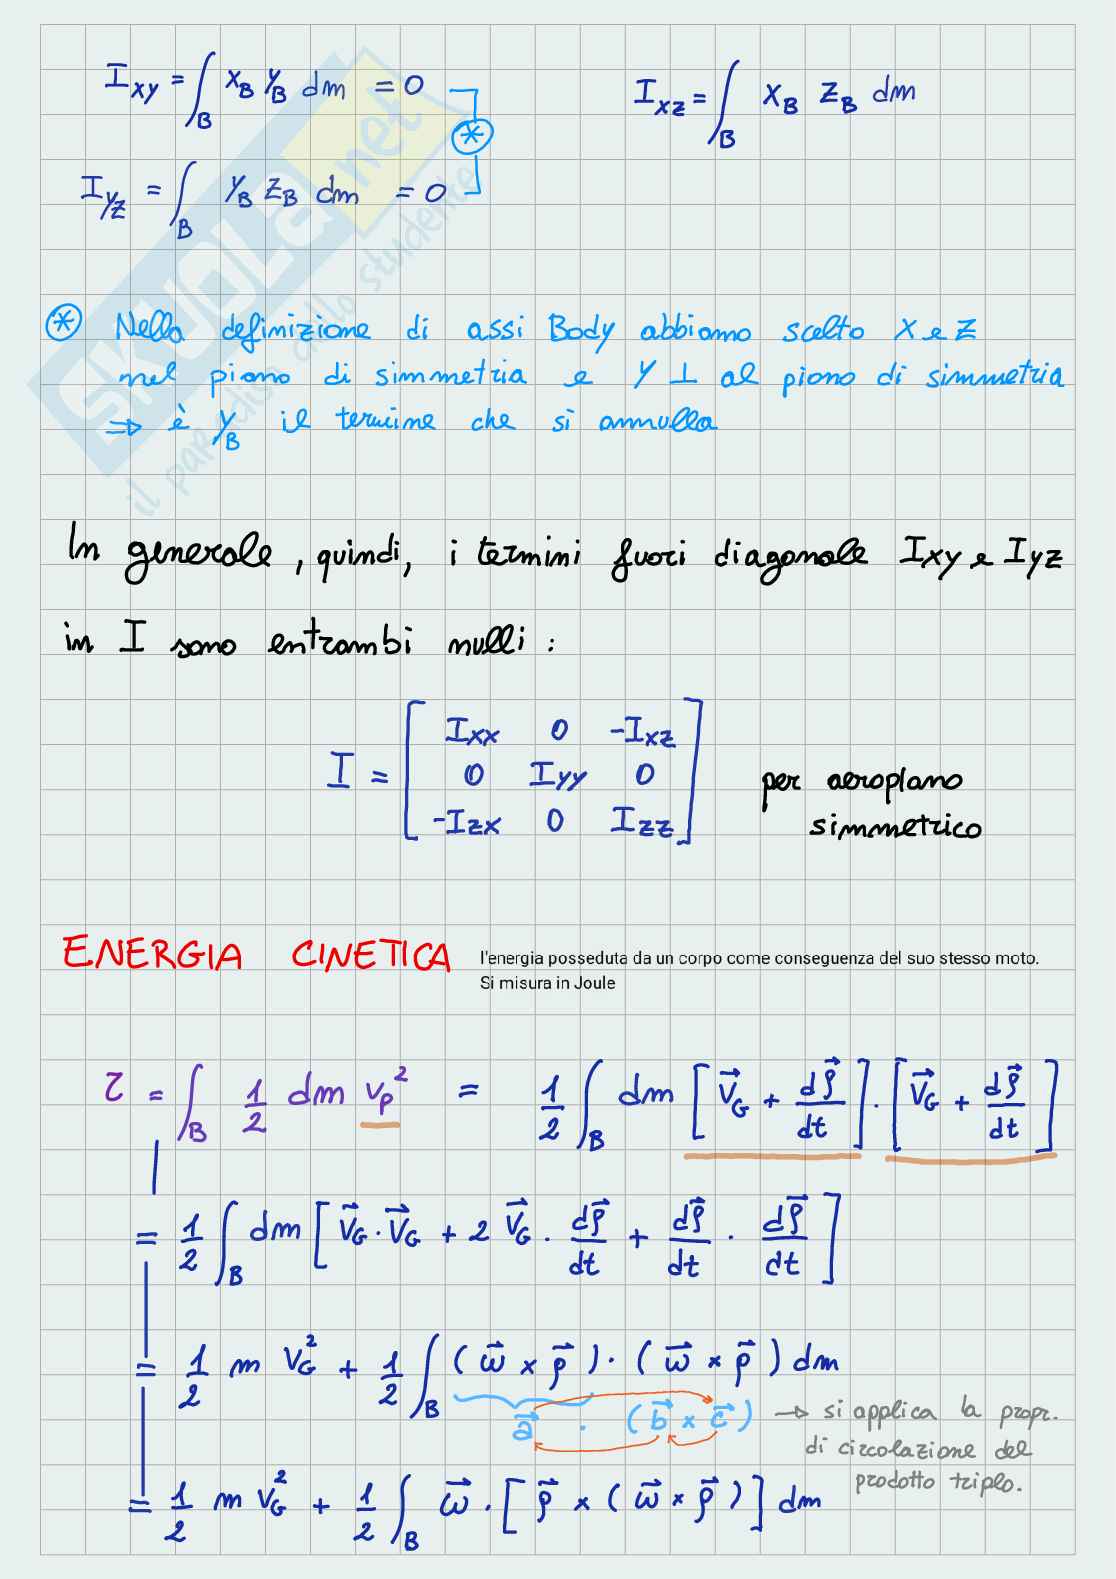 I_xy = ∫_B x_B y_B dm = 0
I_xz = ∫_B x_B z_B dm
*
I_yz = ∫_B y_B z_B dm = 0
SKUOLA.net
il paradiso dello studente
* Nella definizione di assi Body abbiamo scelto X e Z
nel piano di simmetria e Y ⊥ al piano di simmetria
⇒ è y_B il termine che si annulla
In generale, quindi, i termini fuori diagonale Ixy e Iyz
in I sono entrambi nulli :
I = [ Ixx 0 -Ixz
0 Iyy 0
-Izx 0 Izz ]
per aeroplano
simmetrico
ENERGIA CINETICA
l'energia posseduta da un corpo come conseguenza del suo stesso moto.
Si misura in Joule
τ = ∫_B 1/2 dm v_p² = 1/2 ∫_B dm [ v⃗_G + dρ⃗/dt ] · [ v⃗_G + dρ⃗/dt ]
= 1/2 ∫_B dm [ v⃗_G · v⃗_G + 2 v⃗_G · dρ⃗/dt + dρ⃗/dt · dρ⃗/dt ]
= 1/2 m v_G² + 1/2 ∫_B ( ω⃗ × ρ⃗ ) · ( ω⃗ × ρ⃗ ) dm
a⃗ · ( b⃗ × c⃗ ) → si applica la propr.
di circolazione del
prodotto triplo.
= 1/2 m v_G² + 1/2 ∫_B ω⃗ · [ ρ⃗ × ( ω⃗ × ρ⃗ ) ] dm